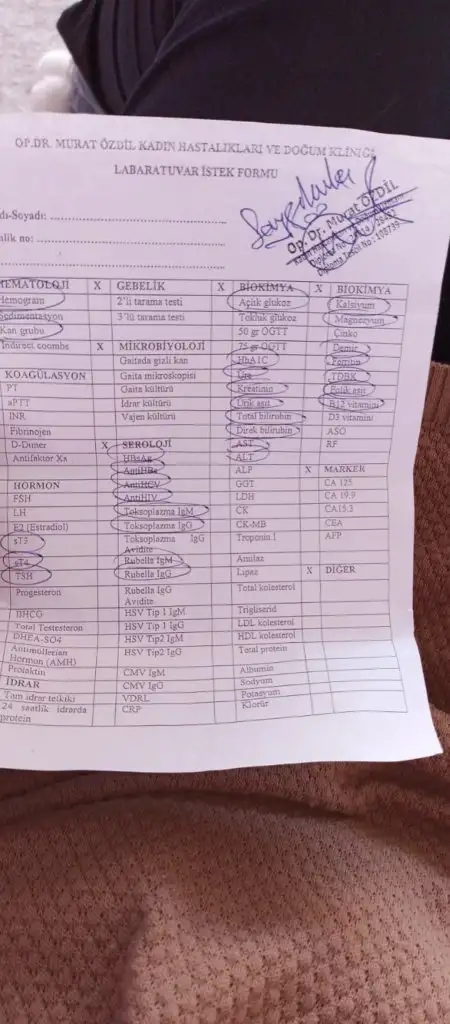 OP.DR. MURAT ÖZDİL KADIN HASTALIKLARI VE DOĞUM KLİNİĞİ
LABARATUVAR İSTEK FORMU
dı-Soyadı:
lik no:
Op. Dr. Murat ÖZDİL
HEMATOLOJİ X GEBELİK X BİOKİMYA X BİOKİMYA
Hemogram 2'li tarama testi Açlık glukoz Kalsiyum
Sedimentasyon 3'lü tarama testi Tokluk glukoz Magnezyum
Kan grubu 50 gr OGTT Çinko
İndirect coombs X MİKROBİYOLOJİ 75 gr OGTT Demir
Gaitada gizli kan HbA1C Ferritin
KOAGÜLASYON Gaita mikroskopisi Üre TDBK
PT Gaita kültürü Kreatinin Folik asit
aPTT İdrar kültürü Ürik asit B12 vitamini
INR Vajen kültürü Total bilirubin D3 vitamini
Fibrinojen Direk bilirubin ASO
D-Dimer X SEROLOJİ AST RF
Antifaktör Xa HBsAg ALT
AntiHBs ALP X MARKER
HORMON AntiHCV GGT CA 125
FSH AntiHIV LDH CA 19.9
LH Toksoplazma IgM CK CA15.3
E2 (Estradiol) Toksoplazma IgG CK-MB CEA
sT3 Toksoplazma IgG Avidite Troponin I AFP
sT4 Rubella IgM Amilaz
TSH Rubella IgG Lipaz X DİĞER
Progesteron Rubella IgG Avidite Total kolesterol
BHCG HSV Tip 1 IgM Trigliserid
Total Testesteron HSV Tip 1 IgG LDL kolesterol
DHEA-SO4 HSV Tip2 IgM HDL kolesterol
Antimüllerian Hormon (AMH) HSV Tip2 IgG Total protein
Prolaktin CMV IgM Albumin
İDRAR CMV IgG Sodyum
Tam idrar tetkiki VDRL Potasyum
24 saatlik idrarda protein CRP Klorür